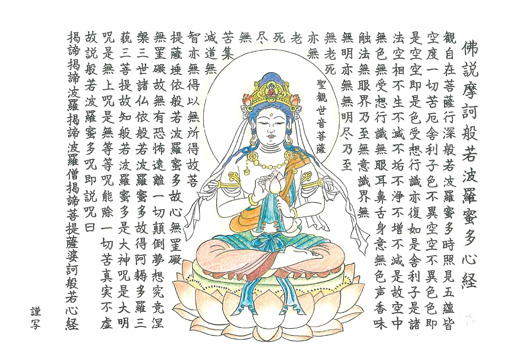 佛説摩訶般若波羅蜜多心経
観自在菩薩行深般若波羅蜜多時照見五蘊皆
空度一切苦厄舎利子色不異空空不異色色即
是空空即是色受想行識亦復如是舎利子是諸
法空相不生不滅不垢不浄不増不減是故空中
無色無受想行識無眼耳鼻舌身意無色声香味
触法無眼界乃至無意識界無
無明亦無無明尽乃至
無老死
亦無
老
死
尽
無
苦集
滅道無
智亦無得以無所得故菩
提薩埵依般若波羅蜜多故心無罣礙
無罣礙故無有恐怖遠離一切顛倒夢想究竟涅
槃三世諸仏依般若波羅蜜多故得阿耨多羅三
藐三菩提故知般若波羅蜜多是大神呪是大明
呪是無上呪是無等等呪能除一切苦真実不虚
故説般若波羅蜜多呪即説呪曰
揭諦揭諦波羅揭諦波羅僧揭諦菩提薩婆訶般若心経
聖觀世音菩薩
謹写